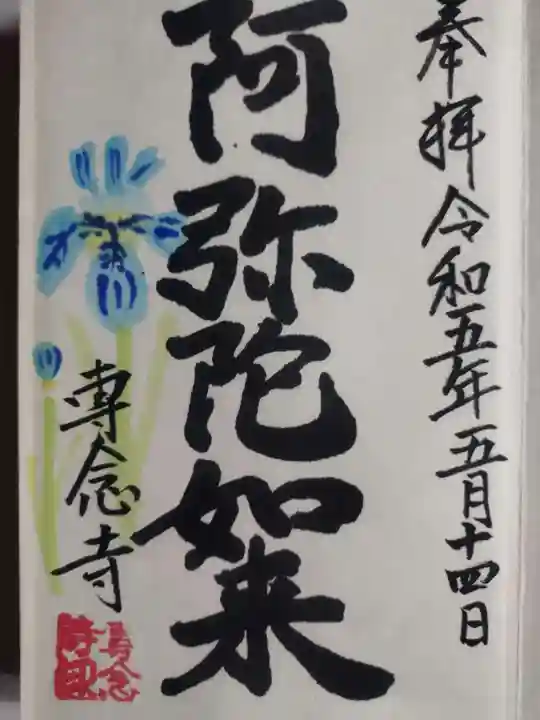 奉拝令和五年五月十四日
阿弥陀如来
專念寺
專念
寺印